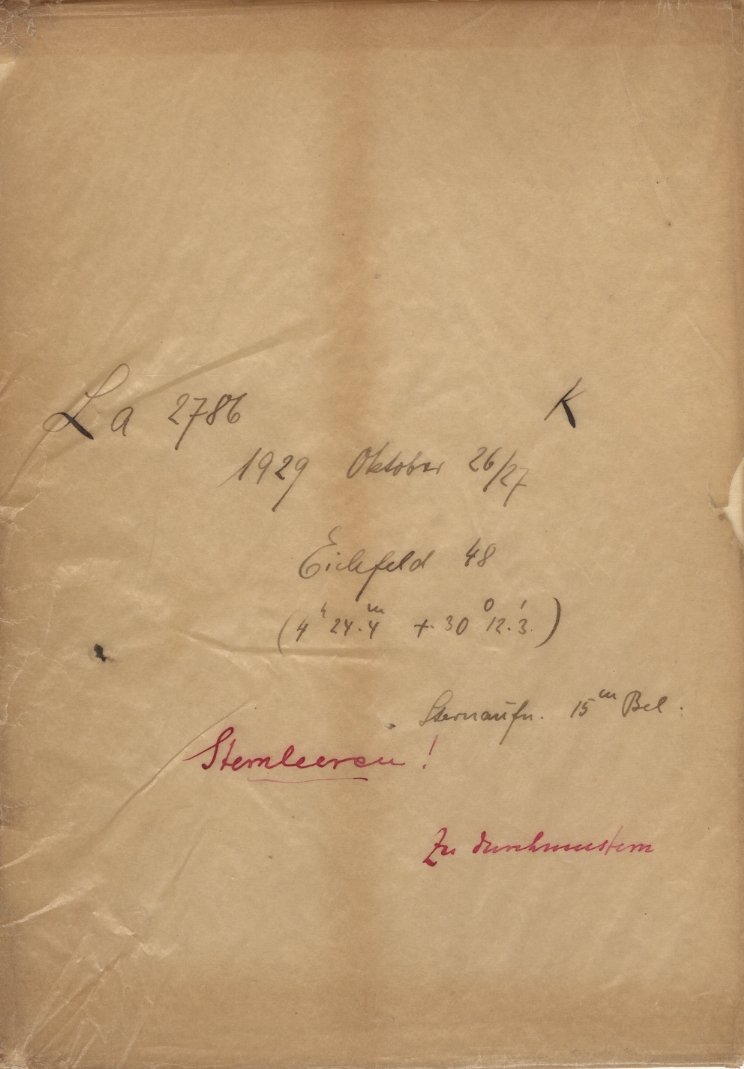 La 2786 K
1929 Oktober 26/27
Eichfeld 48
(4ʰ 24.4ᵐ + 30° 12.3')
Sternaufn. 15ᵐ Bel.
Sternleeren!
Zu durchmustern